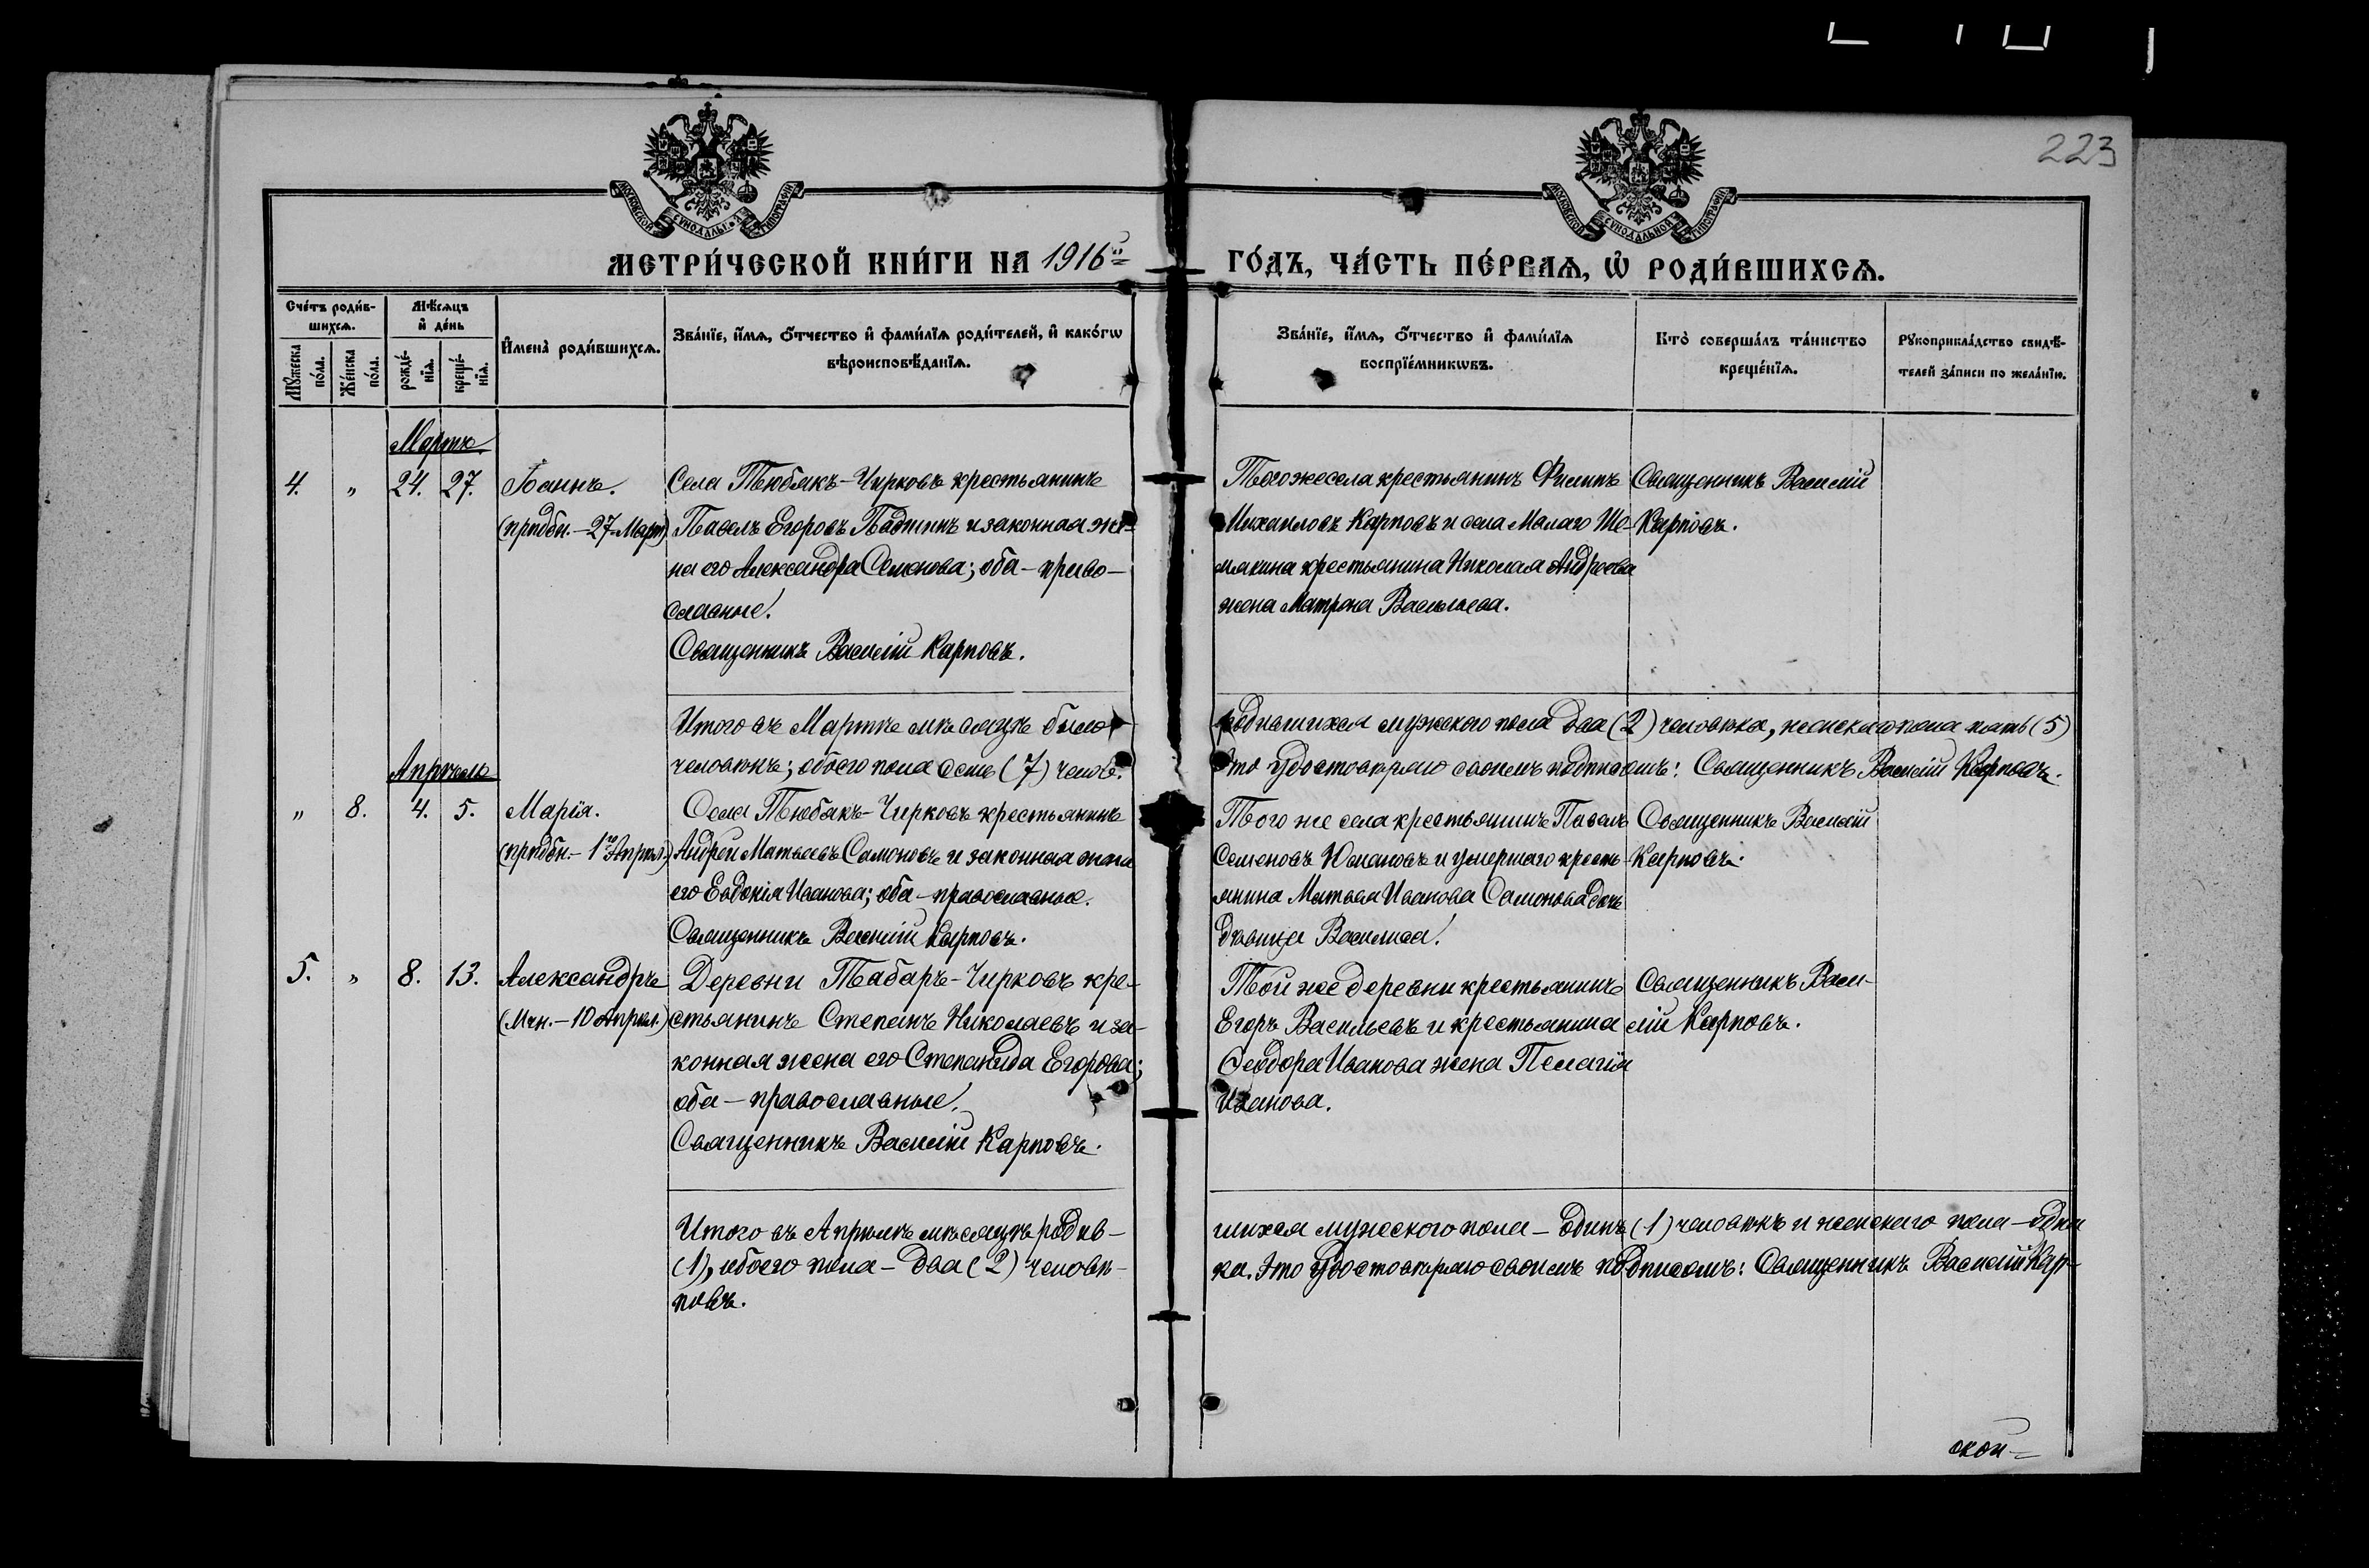 223
МОСКОВСКОЙ СѴНОДАЛЬНОЙ ТИПОГРАФІИ
МОСКОВСКОЙ СѴНОДАЛЬНОЙ ТИПОГРАФІИ
МЕТРИ́ЧЕСКОЙ КНИ́ГИ НА 1916й
ГО́ДЪ, ЧА́СТЬ ПЕ́РВАѦ, Ѡ҆ РОДИ́ВШИХСѦ.
Сче́тъ роди́в-
шихсѧ.
Мѣ́сѧцъ
и҆ де́нь
Мꙋ́жеска
по́ла.
Же́нска
по́ла.
рожде́-
нїѧ.
креще́-
нїѧ.
И҆мена̀ роди́вшихсѧ.
Зва́нїе, и҆́мѧ, ѻ҆́тчество и҆ фами́лїѧ роди́телей, и҆ како́гѡ
вѣроисповѣ́данїѧ.
Зва́нїе, и҆́мѧ, ѻ҆́тчество и҆ фами́лїѧ
воспрїе́мникѡвъ.
Кто̀ соверша́лъ та́инство
креще́нїѧ.
Рꙋкоприкла́дство свидѣ́-
телей за́писи по жела́нїю.
Мартъ.
4. " 24. 27. Іоаннъ.
(прпдбн.-27-Март)
Села Тюбякъ-Чирковъ крестьянинъ
Павелъ Егоровъ и законная же-
на его Александра Семенова; оба - право-
славные.
Священникъ Василій Карповъ.
Того же села крестьянинъ Филипъ
Михаиловъ Карповъ и села Малаго Ше-
мякина крестьянина Николая Андреева
жена Матрона Васильева.
Священникъ Василій
Карповъ.
Итого въ Мартѣ мѣсяцѣ было
родившихся мужескаго пола два (2) человѣка, женскаго пола пять (5)
человѣкъ; обоего пола семь (7) челов.
Это удостовѣряю своимъ подписомъ: Священникъ Василій Карповъ.
Апрѣль
" 8. 4. 5. Марія.
(прпдбн.- 1го Апрѣл.)
Села Тюбякъ-Чирковъ крестьянинъ
Андрей Матвеевъ Самоновъ и законная жена
его Евдокія Иванова; оба - православные.
Священникъ Василій Карповъ.
Того же села крестьянинъ Павелъ
Семеновъ Юмановъ и умершаго кресть-
янина Матвея Иванова Самонова дочь
дѣвица Василиса.
Священникъ Василій
Карповъ.
5. " 8. 13. Александръ
(Мчн.-10 Апрѣл.)
Деревни Табаръ-Чирковъ кре-
стьянинъ Степанъ Николаевъ и за-
конная жена его Степанида Егорова;
оба - православные.
Священникъ Василій Карповъ.
Той же деревни крестьянинъ
Егоръ Васильевъ и крестьянина
Феодора Иванова жена Пелагія
Иванова.
Священникъ Васи-
лій Карповъ.
Итого въ Апрѣлѣ мѣсяцѣ родив-
шихся мужескаго пола - одинъ (1) человѣкъ и женскаго пола - одна
(1), обоего пола - два (2) человѣ-
ка. Это удостовѣряю своимъ подписомъ: Священникъ Василій Кар-
повъ.
ской